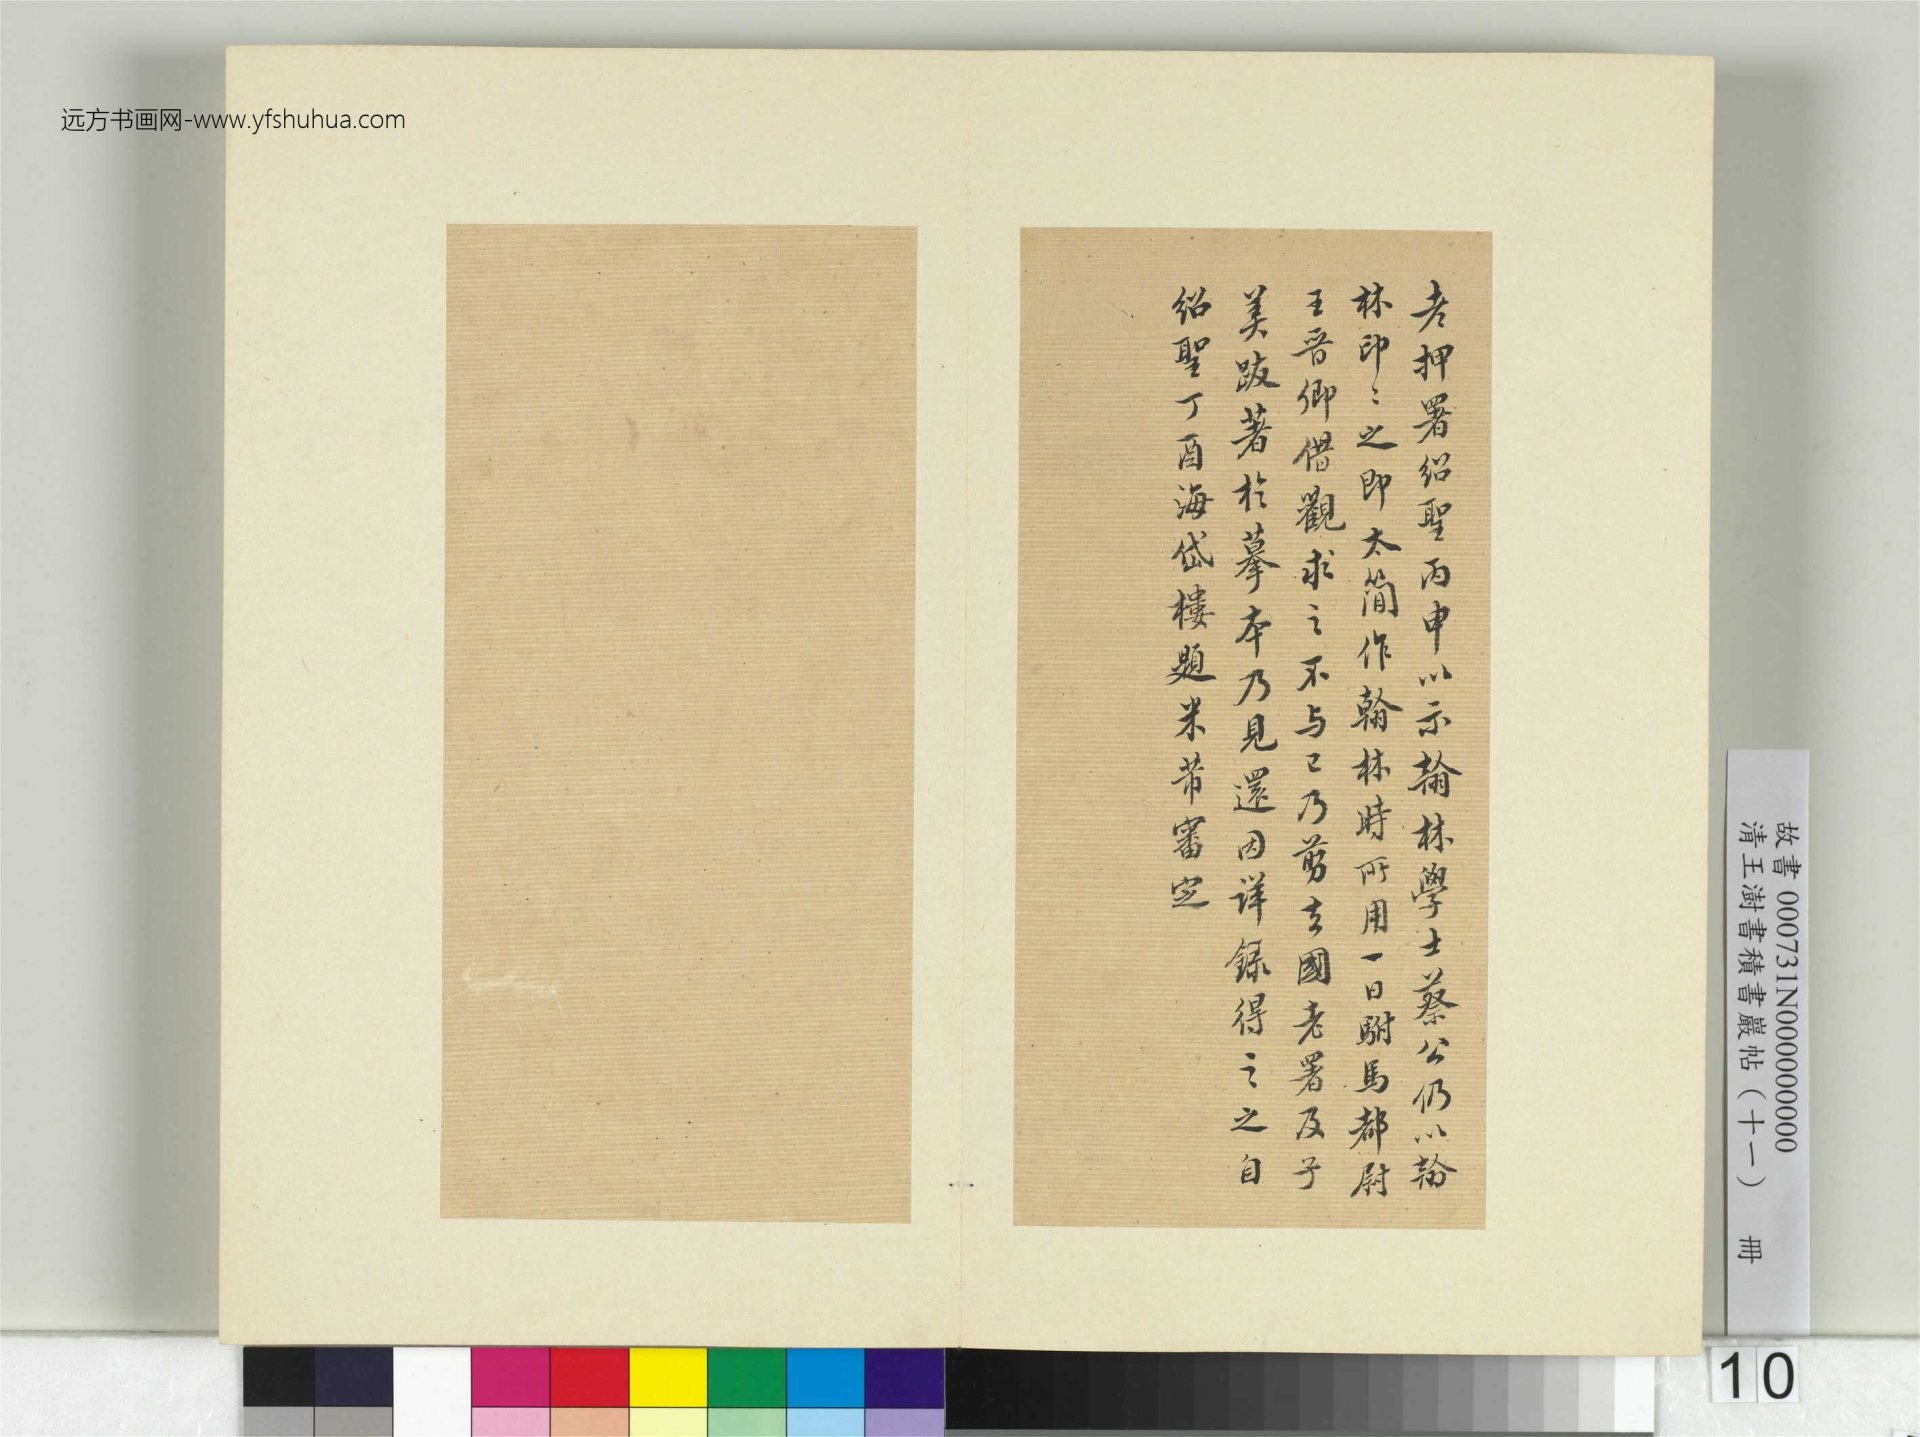 老押署紹聖丙申以示翰林學士蔡公仍以翰
林印〻之即太簡作翰林時所用一日駙馬都尉
王晉卿借觀求之不与已乃剪去國老署及子
美跋著於摹本乃見還因詳錄得之之自
紹聖丁酉海岱樓題米芾審定
远方书画网-www.yfshuhua.com
故書 000731N000000000
清王澍書積書巖帖（十一） 冊
10